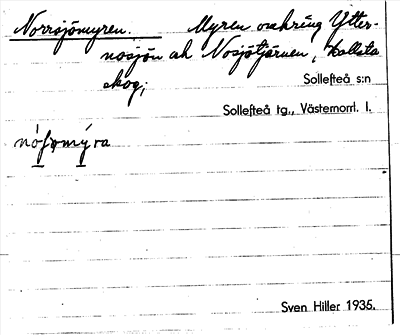 Norrsjömyren. Myren omkring Ytter-
nosjön och Nosjötjärnen, Kallsta
skog;
Sollefteå s:n
Sollefteå tg., Västernorrl. l.
Sven Hiller 1935.